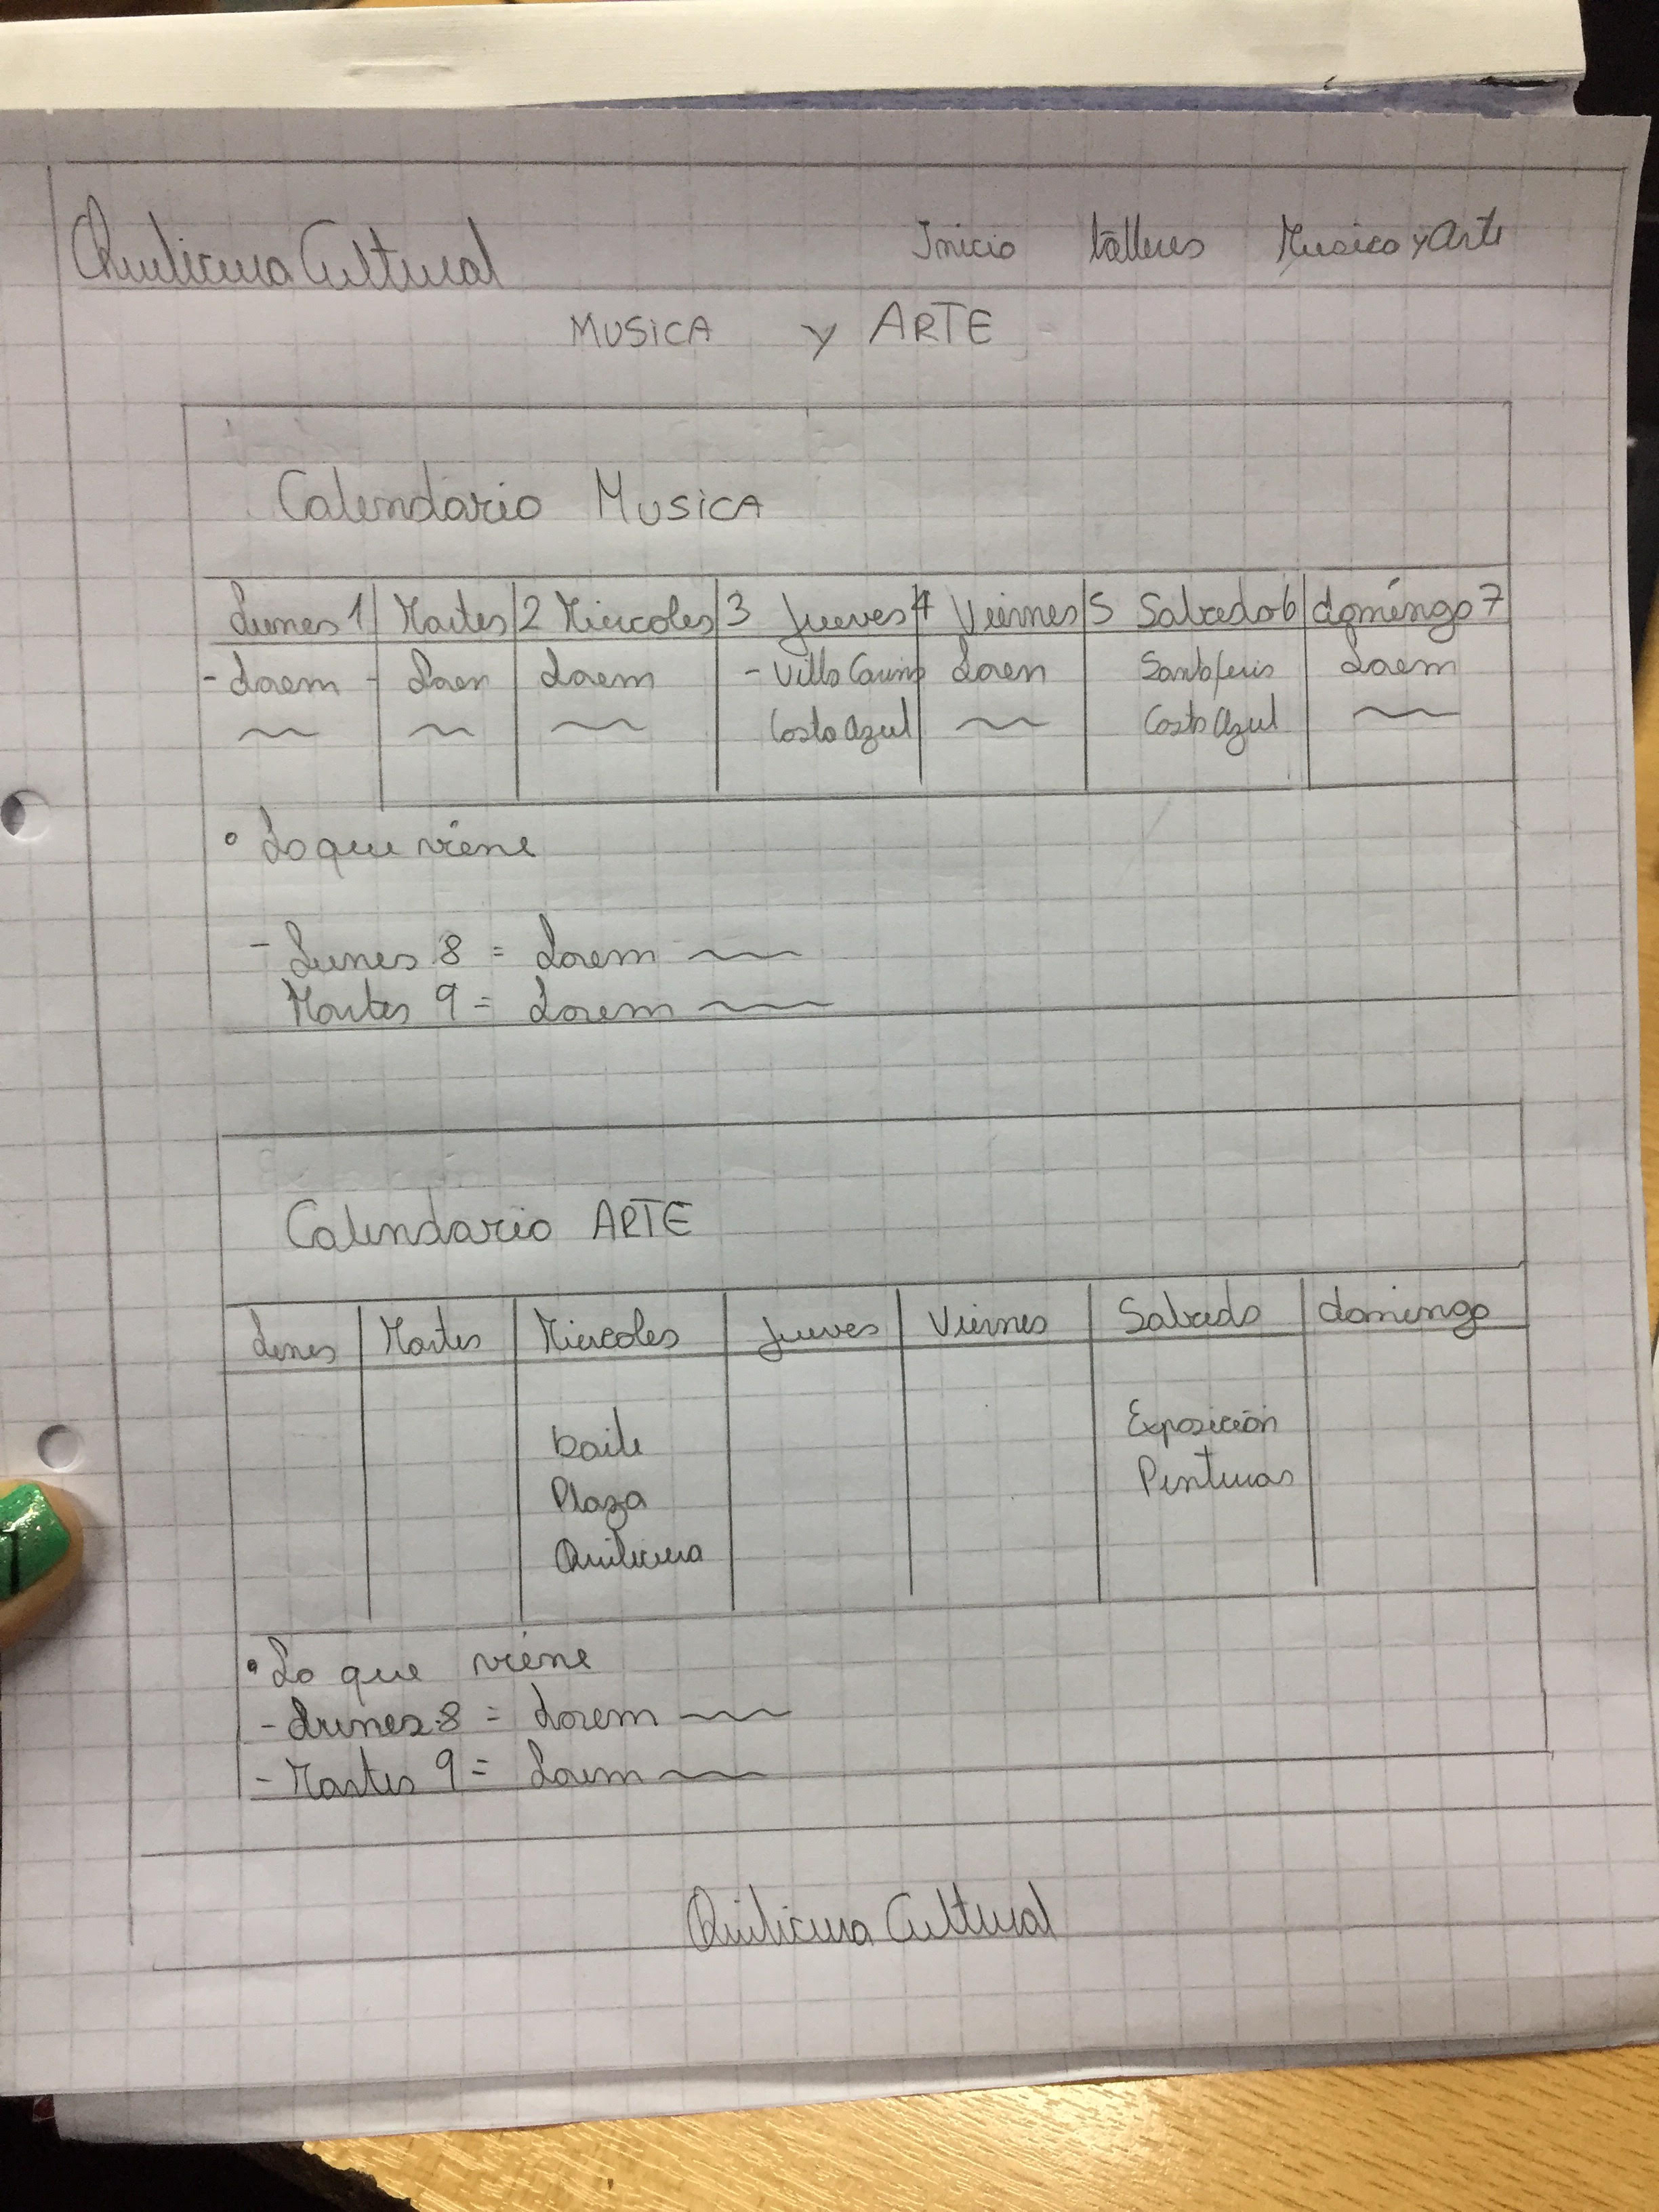 Quilicura Cultural Inicio talleres Musica y Arte
MUSICA y ARTE
Calendario MUSICA
Lunes 1 Martes 2 Miercoles 3 Jueves 4 Viernes 5 Sabado 6 domingo 7
- Lorem - Loren Lorem - Villa Cariño Loren Santa Feria Lorem
Costa Azul Costa Azul
• Lo que viene
- Lunes 8 = Lorem
Martes 9 = Lorem
Calendario ARTE
Lunes Martes Miercoles Jueves Viernes Sabado domingo
baile Exposición
Plaza Pinturas
Quilicura
• Lo que viene
- Lunes 8 = Lorem
- Martes 9 = Lorem
Quilicura Cultural